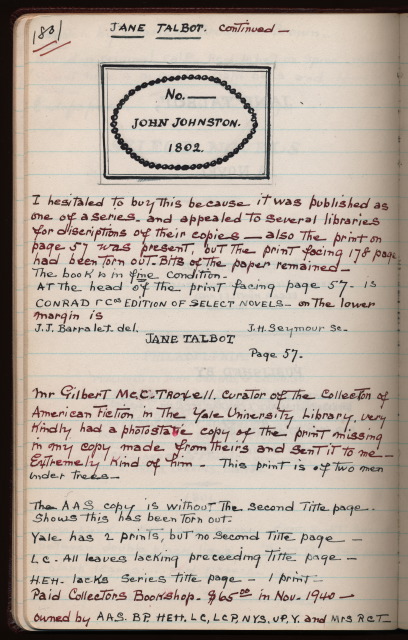 183/
JANE TALBOT. continued —
No. ——
JOHN JOHNSTON.
1802.
I hesitated to buy this because it was published as
one of a series. and appealed to several libraries
for discriptions of their copies — also the print on
page 57 was present, but the print facing 178 page
had been torn out. Bits of the paper remained —
The book is in fine condition.
At the head of the print facing page 57. is
CONRAD & Cos EDITION OF SELECT NOVELS — on the lower
margin is
J.J. Barralet. del. J.H. Seymour Sc.
JANE TALBOT
Page 57.
Mr Gilbert McC. Troxell. Curator of the Collecton of
American Fiction in the Yale University Library, very
kindly had a photostatic copy of the print missing
in my copy made from theirs and sent it to me —
Extremely kind of him — This print is of two men
under trees —
The AAS copy is without the second Title page.
Shows this has been torn out.
Yale has 2 prints, but no second Title page —
L.C. All leaves lacking preceeding Title page —
H.E.H. lacks Series title page — 1 print —
Paid Collectors Bookshop. $65.00 in Nov. 1940 —
owned by AAS. BP. HEH. LC, LCP, NYS, UP, Y. and Mrs RCT —